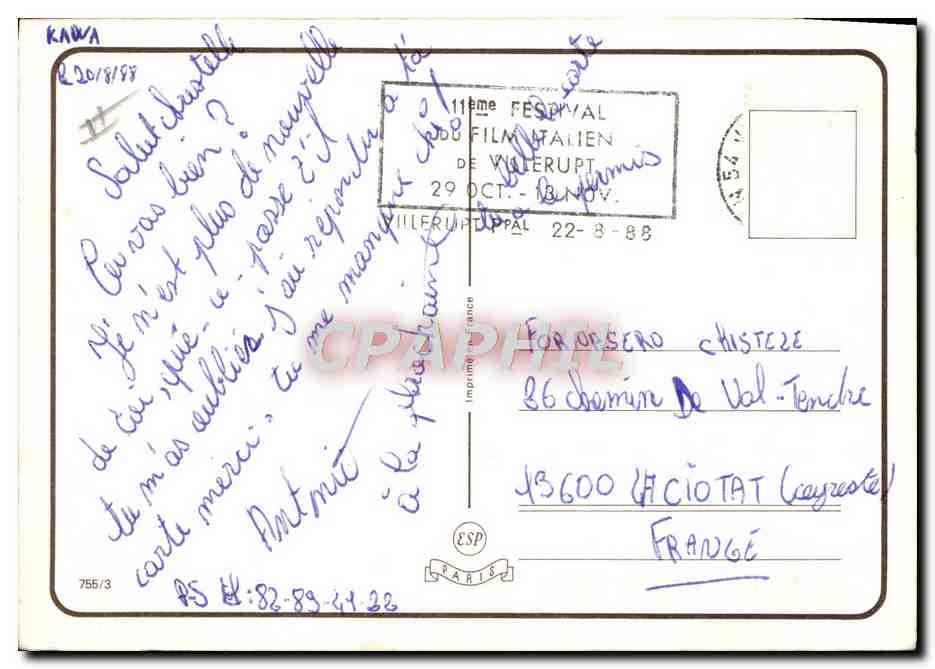 KAWA
Le 20/8/88
11
Salut christelle
Ca vas bien ?
Je n'est plus de nouvelle
de toi, que ce passe t'il
tu m'as oublier j'ai repondu a ta
carte merci, tu me manque
Antonio
à la prochaine
carte
le permis
PS : 82-89-41-22
11ème FESTIVAL
DU FILM ITALIEN
DE VILLERUPT
29 OCT. - 13 NOV.
VILLERUPT PPAL 22-8-88
54
CPAPHIL
Imprimé en France
FORORSERO CHISTELE
86 chemin De Val-Tendre
13600 LA CIOTAT (ceyreste)
FRANCE
ESP
PARIS
755/3